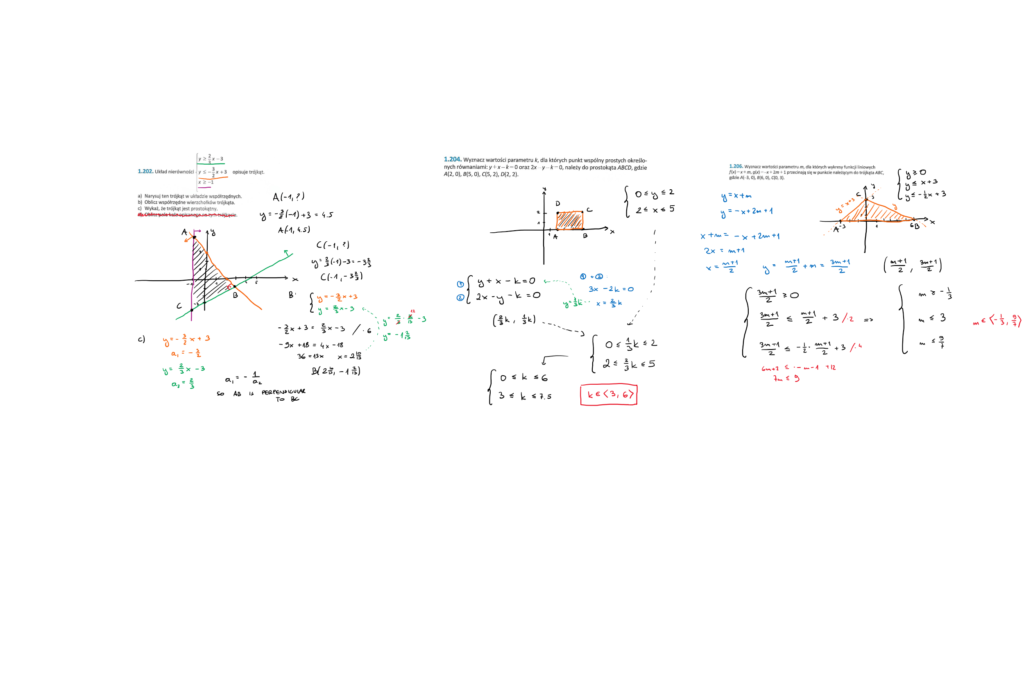 1.202. Układ nierówności
y ≥ 2/3 x − 3
y ≤ − 3/2 x + 3
x ≥ −1
opisuje trójkąt.
a) Narysuj ten trójkąt w układzie współrzędnych.
b) Oblicz współrzędne wierzchołków trójkąta.
c) Wykaż, że trójkąt jest prostokątny.
A(-1, ?)
y = -3/2(-1)+3 = 4.5
A(-1, 4.5)
A
y
x
B
C
C(-1, ?)
y = 2/3(-1)-3 = -3 2/3
C(-1, -3 2/3)
B:
y = -3/2x+3
y = 2/3x-3
-3/2x+3 = 2/3x-3 /·6
-9x+18 = 4x-18
36 = 13x
c)
y = -3/2x + 3
a₁ = -3/2
y = 2/3x - 3
a₂ = 2/3
a₁ = - 1/a₂
SO AB IS PERPENDICULAR
TO BC
1.204. Wyznacz wartości parametru k, dla których punkt wspólny prostych określo-
nych równaniami: y + x − k = 0 oraz 2x − y − k = 0, należy do prostokąta ABCD, gdzie
A(2, 0), B(5, 0), C(5, 2), D(2, 2).
0 ≤ y ≤ 2
2 ≤ x ≤ 5
y
D
C
A
B
x
① y + x - k = 0
② 2x - y - k = 0
① + ②
3x - 2k = 0
x = 2/3k
y = 1/3k
(2/3k, 1/3k)
0 ≤ 1/3k ≤ 2
2 ≤ 2/3k ≤ 5
0 ≤ k ≤ 6
3 ≤ k ≤ 7.5
k ∈ ⟨3, 6⟩
1.206. Wyznacz wartości parametru m, dla których wykresy funkcji liniowych
f(x) = x + m, g(x) = −x + 2m + 1 przecinają się w punkcie należącym do trójkąta ABC,
gdzie A(−3, 0), B(6, 0), C(0, 3).
y ≥ 0
y ≤ x + 3
y ≤ -1/2x + 3
y = x+m
y = -x+2m+1
y = x+3
C
3
A
-3
1
6
B
x
x+m = -x+2m+1
2x = m+1
x = m+1/2
y = m+1/2 + m = 3m+1/2
(m+1/2, 3m+1/2)
3m+1/2 ≥ 0
3m+1/2 ≤ m+1/2 + 3 /·2 =>
3m+1/2 ≤ -1/2 · m+1/2 + 3 /·4
6m+2 ≤ -m-1+12
7m ≤ 9
m ≥ -1/3
m ≤ 3
m ≤ 9/7
m ∈ ⟨-1/3, 9/7⟩